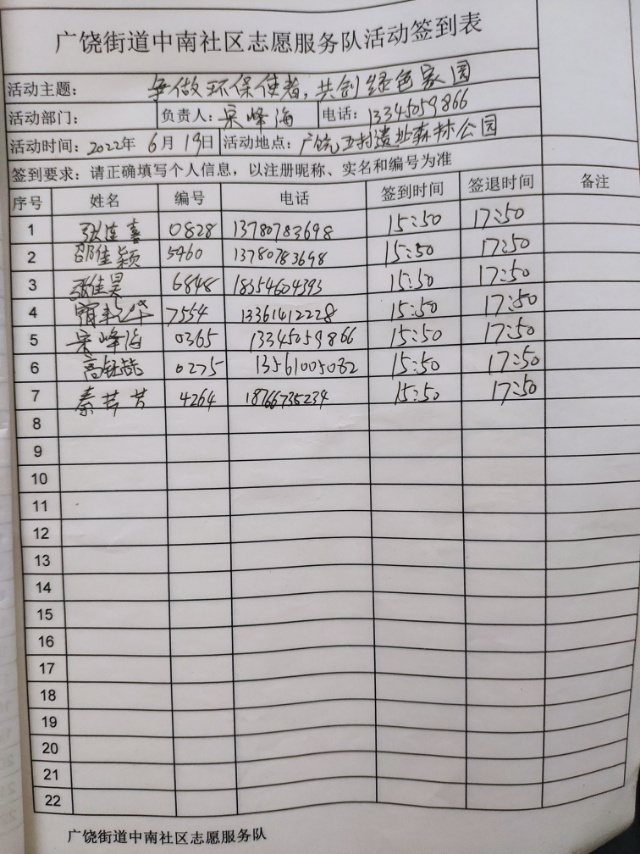 广饶街道中南社区志愿服务队活动签到表
活动主题： 争做环保使者，共创绿色家园
活动部门： 负责人：宋峰海 电话：13345059866
活动时间：2022年6月19日 活动地点：广饶 遗址森林公园
签到要求：请正确填写个人信息，以注册昵称、实名和编号为准
序号 姓名 编号 电话 签到时间 签退时间 备注
1 0828 13780783698 15:50 17:50
2 邵佳颖 5960 13780783698 15:50 17:50
3 张佳昊 6848 18354604393 15:50 17:50
4 7554 13361412228 15:50 17:50
5 宋峰海 0365 13345059866 15:50 17:50
6 0275 13561005032 15:50 17:50
7 秦芳芳 4264 18766735234 15:50 17:50
8
9
10
11
12
13
14
15
16
17
18
19
20
21
22
广饶街道中南社区志愿服务队